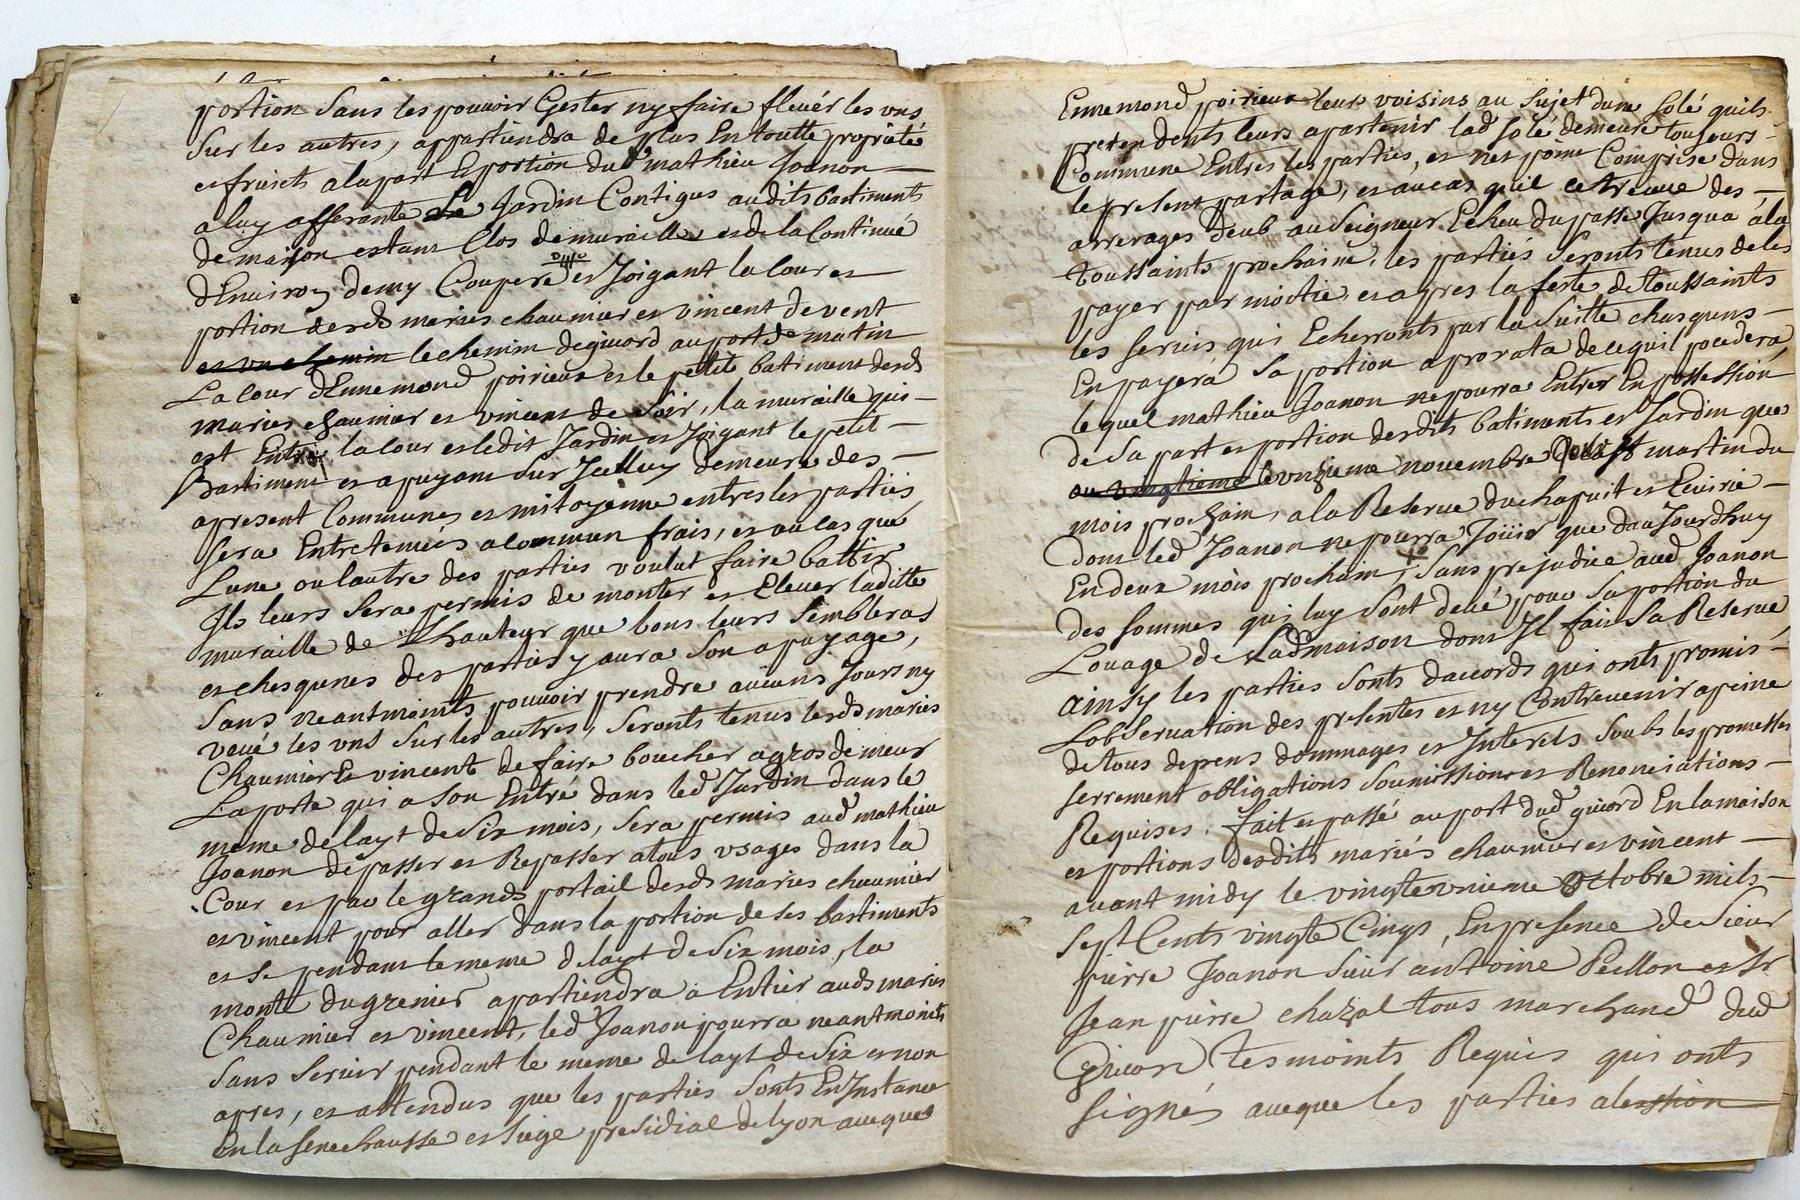 portion sans les pouvoir Gester ny faire flever les uns
sur les autres, appartiendra de plus En toutte proprieté
et fruicts a la part Et portion dud mathieu Joanon
a luy afferante Le Jardin Contigus audits batiments
de maison estant Clos de muraille et de la Continué
dEnviron demy Couperé et Joigant la Cour et
portion desds mariés chaumier et vincent de vent
et un chemin le chemin de givord au port de matin
La Cour dEnnemond poirieux et le petits batiment desds
mariés chaumier et vincent de soir, la muraille qui
est Entre la Cour et ledit Jardin et Joigant le petit
Bastiment et apuyant sur Jcelluy demeure des
apresent Commune et mitoyenne entres les parties
sera Entretenués a Commun frais, et au cas que
Lune ou lautre des parties voulut faire battir
Ils leurs sera permis de monter et Elever laditte
muraille de Lhauteur que bons leurs semblerat
et chesqunes des parties y aura son apuyage,
sans neantmoints pouvoir prendre aucuns Jours ny
veüé les uns sur les autres, seronts tenus lesds mariés
Chaumier Et vincent de faire boucher a gros de meur
La porte qui a son Entré dans led Jardin dans le
meme delayt de six mois, sera permis aud mathieu
Joanon de passer et Repasser a tous usages dans la
Cour et par le grands portail desds mariés chaumier
et vincent pour aller dans la portion de ses bastiments
et se pendant le meme delayt de six mois, la
monté du grenier apartiendra a Entier auds mariés
Chaumier et vincent, led Joanon pourra neantmoints
sans servir pendant le meme delayt de six et non
apres, et attendus que les parties sonts En Jnstance
En la senechaussé et siege presidial de lyon aveque
Ennemond poirieux leurs voisins au sujet dune solé quils
pretendents leurs apartenir lad solé demeure tousjours
Commune Entres les parties, et nest point Comprise dans
le present partage, et au cas quil ce treuve des
arrerages deub au seigneur Echeu du passe Jusqua a la
toussaints prochaine, les partiés seronts tenus de les
payer par moitie, et apres la feste de toussaints
les servis qui Echerronts par la suitte chasquns
En payera sa portion a prorata de ce quil poscdera
lequel mathieu Joanon ne pourra Entrer En possession
de sa part et portion desdits batiments et Jardin que
au vingtieme le unzieme novembre Jour st martin du
mois prochain, a la Reserve du chapuit et Ecuirie
dont led Joanon ne pourra Joüir que dau Jourdhuy
En deux mois prochain, sans prejudice aud Joanon
des sommes qui luy sont deüé pour sa portion du
Louage de Ladmaison dont Jl fait sa Reserve
ainsy les parties sonts daccords qui onts promis
Lobservation des presentes et ny Contrevenir a peine
de tous depens dommages et Jnterets soubs les promesses
serrement obligations soumissions et Renonciations
Requises, fait et passé au port dud givord En la maison
et portions desdits mariés chaumier et vincent
avant midy le vingte unieme octobre mils
sept Cents vingte Cinqs, En presence de sieur
pierre Joanon sieur antoine Peillon et sr
Jean pierre chazal tous marchand dud
Givors tesmoints Requis qui onts
signés aveque les parties